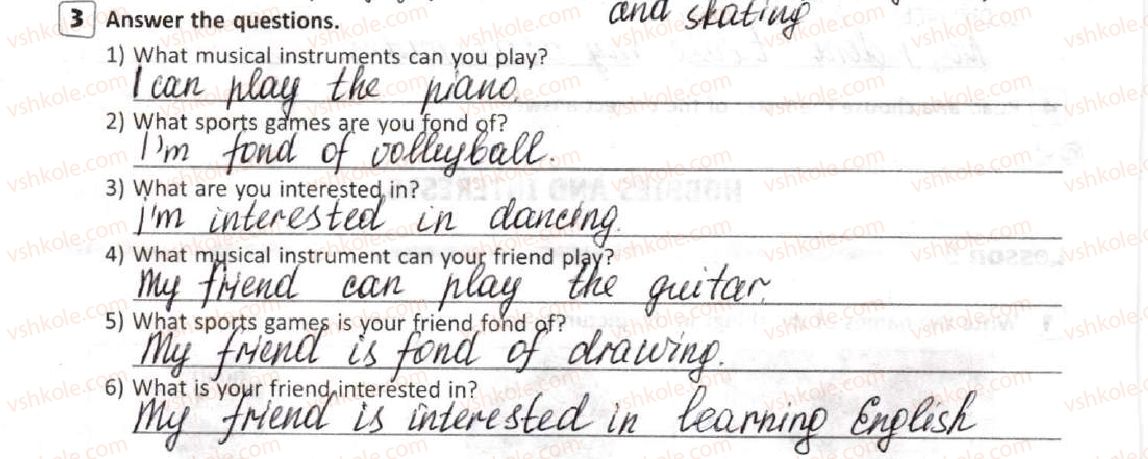 and skating
3 Answer the questions.
1) What musical instruments can you play?
I can play the piano.
2) What sports games are you fond of?
I'm fond of volleyball.
3) What are you interested in?
I'm interested in dancing.
4) What musical instrument can your friend play?
My friend can play the guitar.
5) What sports games is your friend fond of?
My friend is fond of drawing.
6) What is your friend interested in?
My friend is interested in learning English